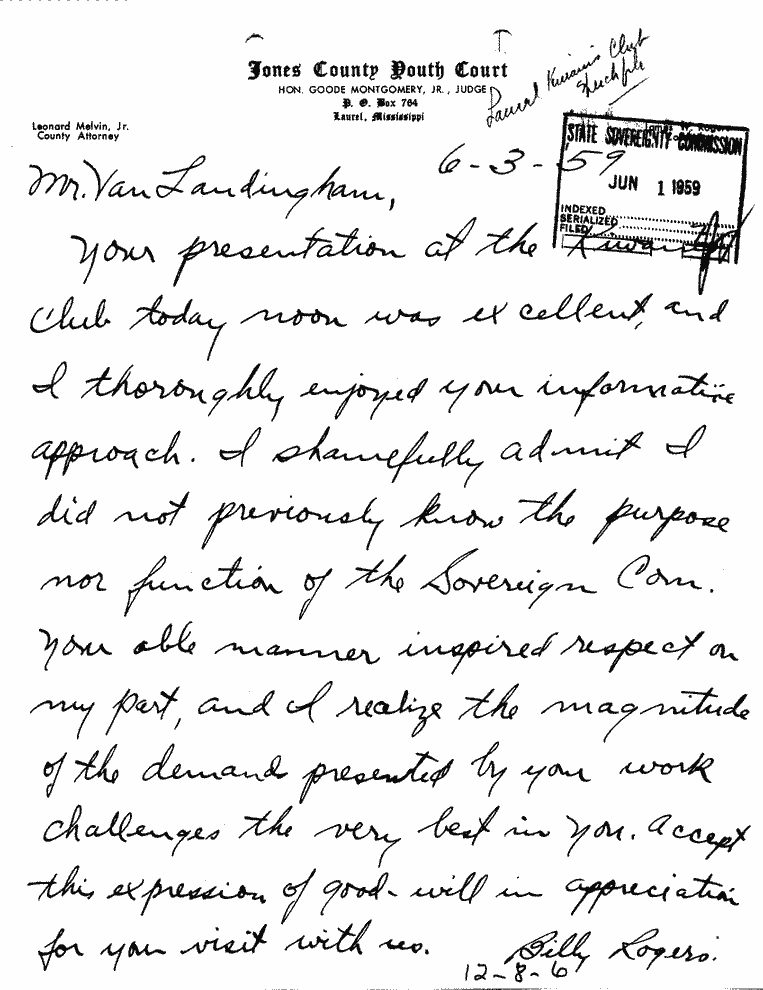 Laurel Kiwanis Club
Jones County Youth Court
HON. GOODE MONTGOMERY, JR., JUDGE
P. O. Box 764
Laurel, Mississippi
Leonard Melvin, Jr.
County Attorney
STATE SOVEREIGNTY COMMISSION
JUN 1 1959
INDEXED
SERIALIZED
FILED
6-3-59
Mr. Van Landingham,
Your presentation at the Kiwanis
Club today noon was excellent, and
I thoroughly enjoyed your informative
approach. I shamefully admit I
did not previously know the purpose
nor function of the Sovereign Com.
Your able manner inspired respect on
my part, and I realize the magnitude
of the demands presented by your work
challenges the very best in you. Accept
this expression of good-will in appreciation
for your visit with us. Billy Rogers.
12-8-6